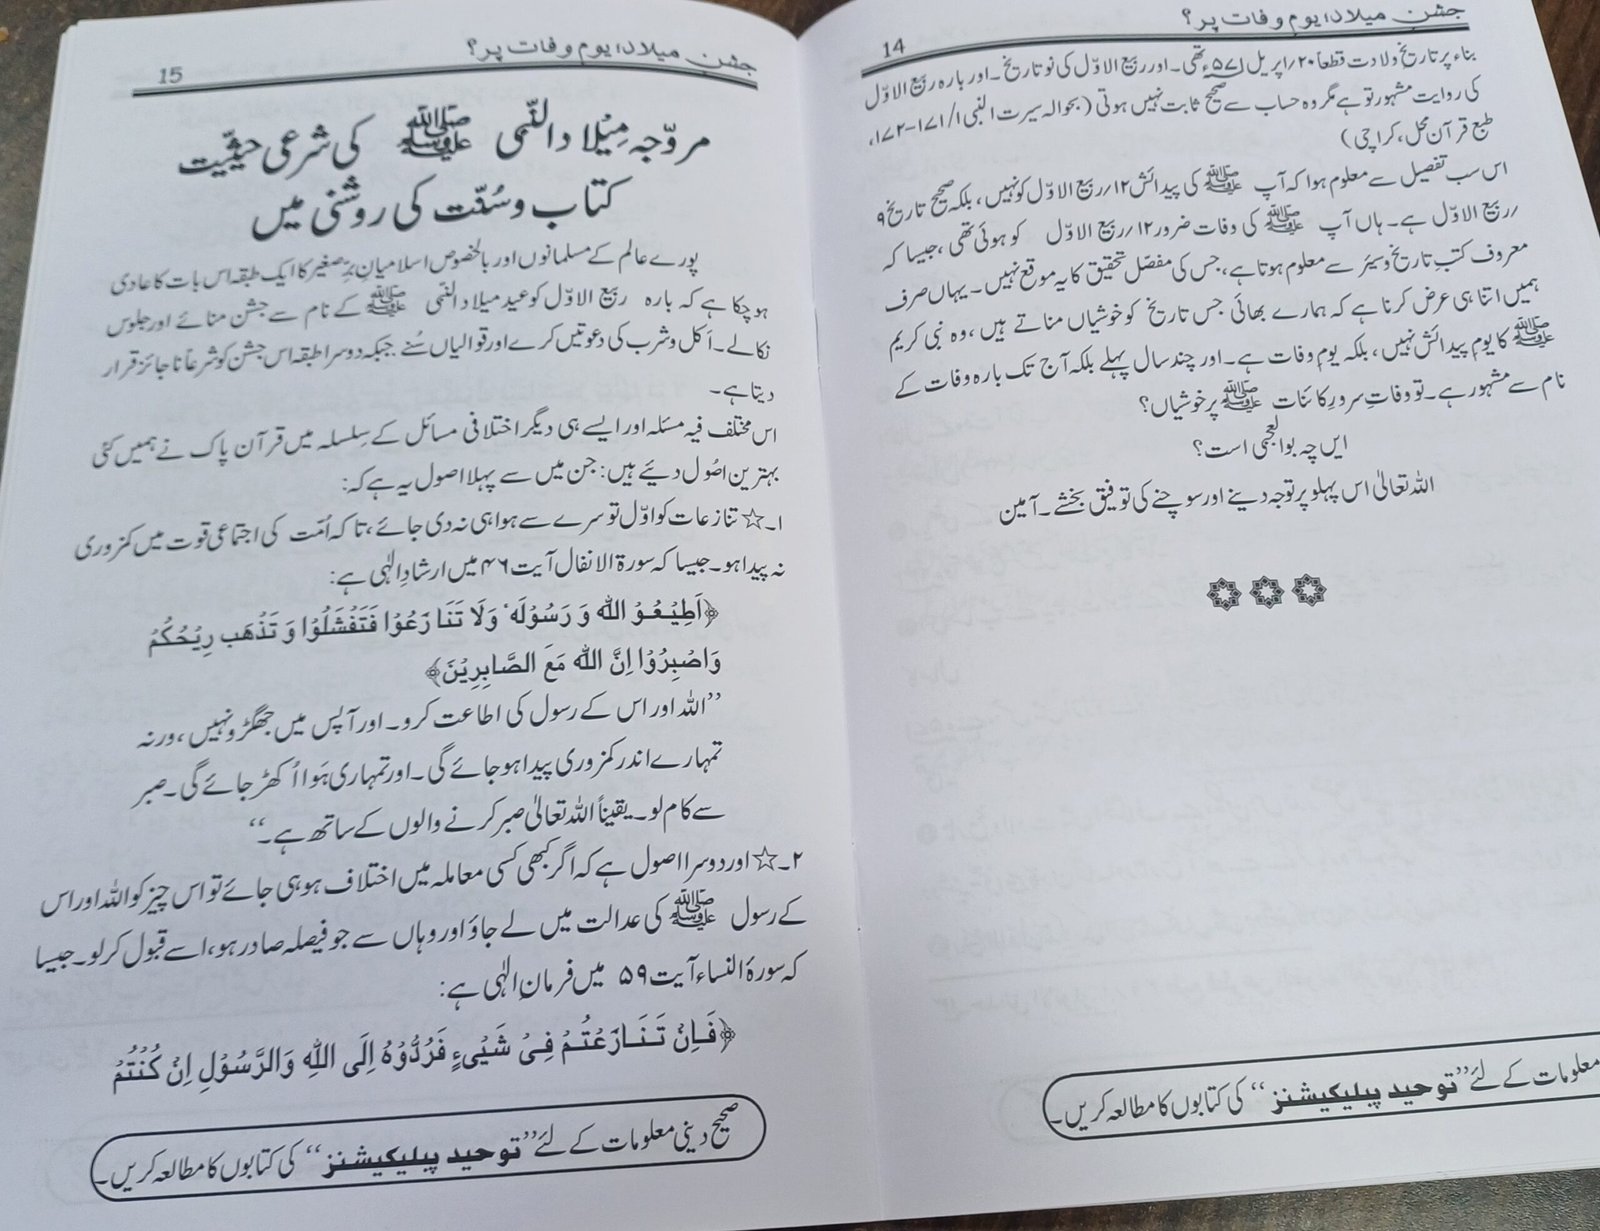 جشنِ میلاد؛ یومِ وفات پر؟
14
بناء پر تاریخِ ولادت قطعاً ۲۰؍اپریل ۵۷۱ء تھی۔ اور ربیع الاوّل کی نو تاریخ۔ اور بارہ ربیع الاوّل
کی روایت مشہور تو ہے مگر وہ حساب سے صحیح ثابت نہیں ہوتی (بحوالہ سیرت النبی ۱/۱۷۱-۱۷۲،
طبع قرآن محل، کراچی)
اس سب تفصیل سے معلوم ہوا کہ آپ ﷺ کی پیدائش ۱۲؍ربیع الاوّل کو نہیں، بلکہ صحیح تاریخ ۹
؍ربیع الاوّل ہے۔ ہاں آپ ﷺ کی وفات ضرور ۱۲؍ربیع الاوّل کو ہوئی تھی، جیسا کہ
معروف کتبِ تاریخ و سیَر سے معلوم ہوتا ہے، جس کی مفصّل تحقیق کا یہ موقع نہیں۔ یہاں صرف
ہمیں اتنا ہی عرض کرنا ہے کہ ہمارے بھائی جس تاریخ کو خوشیاں مناتے ہیں، وہ نبی کریم
ﷺ کا یومِ پیدائش نہیں، بلکہ یومِ وفات ہے۔ اور چند سال پہلے بلکہ آج تک بارہ وفات کے
نام سے مشہور ہے۔ تو وفاتِ سرورِ کائنات ﷺ پر خوشیاں؟
ایں چہ بوالعجبی است؟
اللہ تعالیٰ اس پہلو پر توجہ دینے اور سوچنے کی توفیق بخشے۔ آمین
معلومات کے لئے ’’توحید پبلیکیشنز‘‘ کی کتابوں کا مطالعہ کریں۔
جشنِ میلاد؛ یومِ وفات پر؟
15
مروّجہ مِیْلاد النّبی ﷺ کی شرعی حیثیّت
کتاب و سُنّت کی روشنی میں
پورے عالم کے مسلمانوں اور بالخصوص اسلامیانِ برِّصغیر کا ایک طبقہ اس بات کا عادی
ہو چکا ہے کہ بارہ ربیع الاوّل کو عید میلاد النّبی ﷺ کے نام سے جشن منائے اور جلوس
نکالے۔ اَکل و شرب کی دعوتیں کرے اور قوالیاں سُنے جبکہ دوسرا طبقہ اس جشن کو شرعاً ناجائز قرار
دیتا ہے۔
اس مختلف فیہ مسئلہ اور ایسے ہی دیگر اختلافی مسائل کے سِلسلہ میں قرآن پاک نے ہمیں کئی
بہترین اصُول دیئے ہیں: جن میں سے پہلا اصول یہ ہے کہ:
۱۔☆ تنازعات کو اوّل تو سرے سے ہوا ہی نہ دی جائے، تاکہ اُمّت کی اجتماعی قوت میں کمزوری
نہ پیدا ہو۔ جیسا کہ سورۃ الانفال آیت ۴۶ میں ارشادِ الٰہی ہے:
﴿اَطِیْعُوْ اللّٰہَ وَ رَسُوْلَہٗ وَلَا تَنَازَعُوْا فَتَفْشَلُوْا وَ تَذْھَب رِیْحُکُمْ
وَاصْبِرُوْا اِنَّ اللّٰہَ مَعَ الصَّابِرِیْنَ﴾
’’اللہ اور اس کے رسول کی اطاعت کرو۔ اور آپس میں جھگڑو نہیں، ورنہ
تمہارے اندر کمزوری پیدا ہو جائے گی۔ اور تمہاری ہَوا اُکھڑ جائے گی۔ صبر
سے کام لو۔ یقیناً اللہ تعالیٰ صبر کرنے والوں کے ساتھ ہے۔‘‘
۲۔☆ اور دوسرا اصول ہے کہ اگر کبھی کسی معاملہ میں اختلاف ہو ہی جائے تو اس چیز کو اللہ اور اس
کے رسول ﷺ کی عدالت میں لے جاؤ اور وہاں سے جو فیصلہ صادر ہو، اسے قبول کر لو۔ جیسا
کہ سورۃ النساء آیت ۵۹ میں فرمانِ الٰہی ہے:
﴿فَاِنْ تَنَازَعْتُمْ فِیْ شَیْیءٍ فَرُدُّوْہُ اِلَی اللّٰہِ وَالرَّسُوْلِ اِنْ کُنْتُمْ
صحیح دینی معلومات کے لئے ’’توحید پبلیکیشنز‘‘ کی کتابوں کا مطالعہ کریں۔